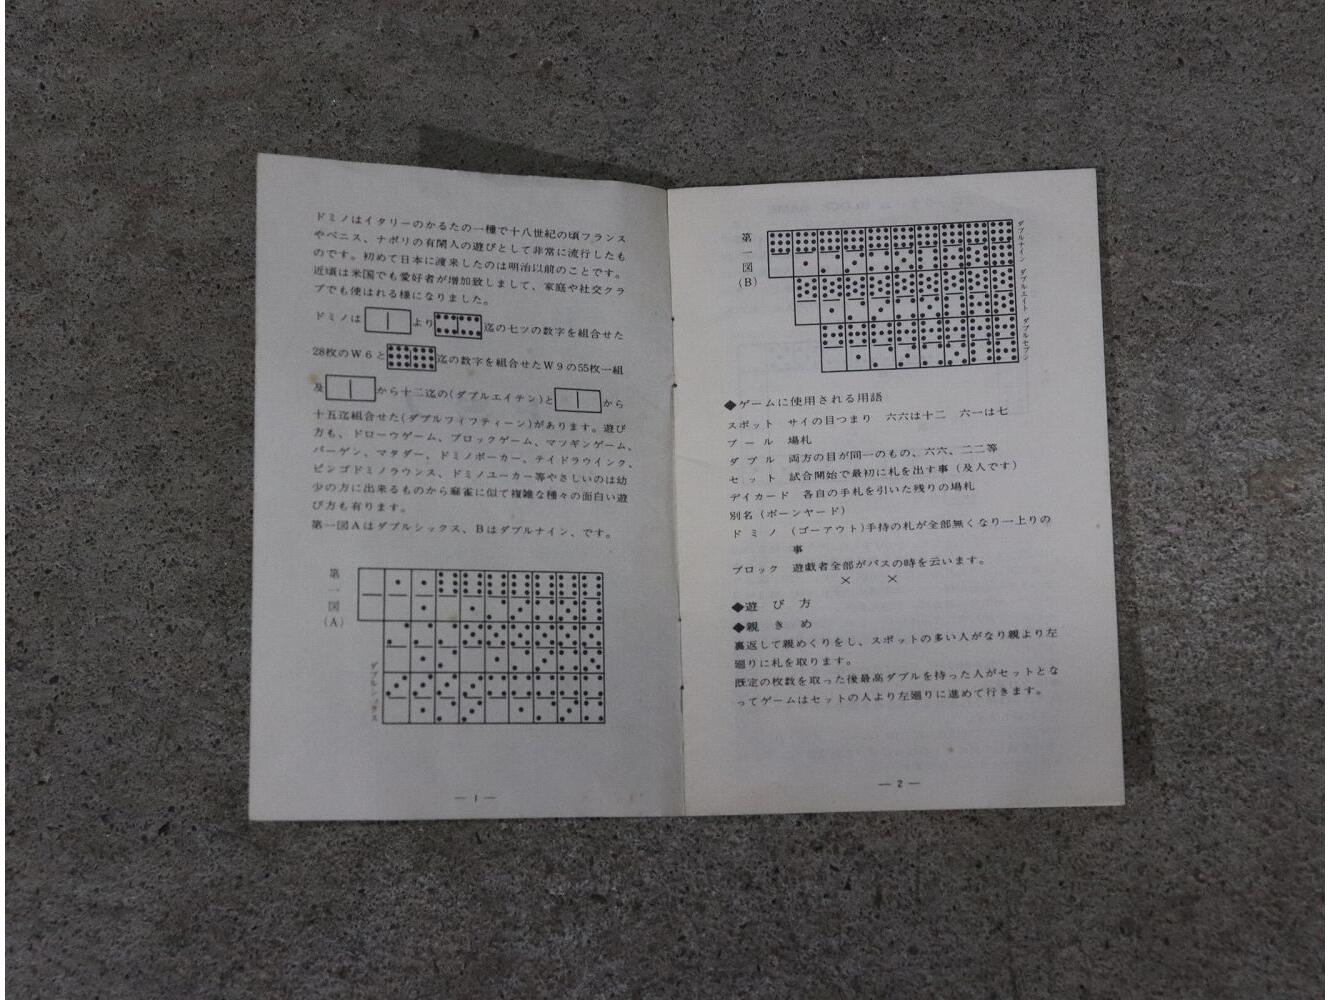 ドミノはイタリーのかるたの一種で十八世紀の頃フランス
やベニス、ナポリの有閑人の遊びとして非常に流行したも
のです。初めて日本に渡来したのは明治以前のことです。
近頃は米国でも愛好者が増加致しまして、家庭や社交クラ
ブでも使はれる様になりました。
ドミノは より 迄の七ツの数字を組合せた
28枚のW6と 迄の数字を組合せたW9の55枚一組
及 から十二迄の(ダブルエイテン)と から
十五迄組合せた(ダブルフィフティーン)があります。遊び
方も、ドローウゲーム、ブロックゲーム、マツギンゲーム、
バーゲン、マタダー、ドミノポーカー、テイドラウインク、
ビンゴドミノラウンス、ドミノユーカー等やさしいのは幼
少の方に出来るものから麻雀に似て複雑な種々の面白い遊
び方も有ります。
第一図Aはダブルシックス、Bはダブルナイン、です。
第一図(A)
ダブルシックス
— 1 —
第一図(B)
ダブルナイン ダブルエイト ダブルセブン
◆ゲームに使用される用語
スポット サイの目つまり 六六は十二 六一は七
プール 場札
ダブル 両方の目が同一のもの、六六、二二等
セット 試合開始で最初に札を出す事(及人です)
デイカード 各自の手札を引いた残りの場札
別名(ボーンヤード)
ドミノ (ゴーアウト)手持の札が全部無くなり一上りの
事
ブロック 遊戯者全部がパスの時を云います。
× ×
◆遊び方
◆親きめ
裏返して親めくりをし、スポットの多い人がなり親より左
廻りに札を取ります。
既定の枚数を取った後最高ダブルを持った人がセットとな
ってゲームはセットの人より左廻りに進めて行きます。
— 2 —